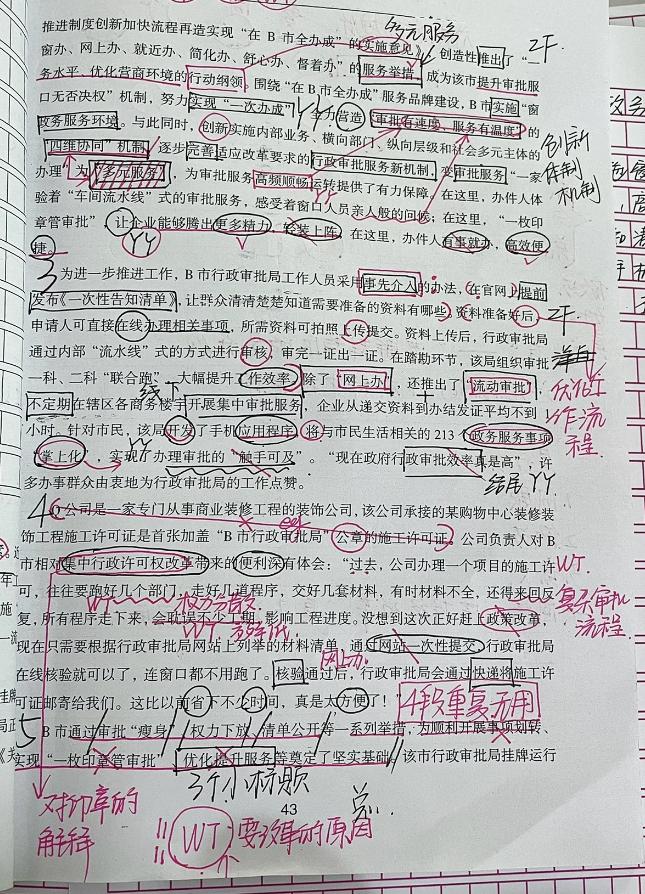 推进制度创新加快流程再造实现“在 B 市全办成”的实施意见》，创造性推出了“一
多元服务
ZF
窗办、网上办、就近办、简化办、舒心办、督着办”的服务举措，成为该市提升审批服
务水平、优化营商环境的行动纲领。围绕“在 B 市全办成”服务品牌建设，B 市实施“窗
口无否决权”机制，努力实现“一次办成”，全力营造“审批有速度、服务有温度”的
YY
政务服务环境。与此同时，创新实施内部业务、横向部门、纵向层级和社会多元主体的
“四维协同”机制，逐步完善适应改革要求的行政审批服务新机制，变审批服务“一家
创新
体制
机制
办理”为“多元服务”，为审批服务高频顺畅运转提供了有力保障。在这里，办件人体
验着“车间流水线”式的审批服务，感受着窗口人员亲人般的问候；在这里，“一枚印
章管审批”，让企业能够腾出更多精力、轻装上阵。在这里，办件人有事就办，高效便
捷。
YY
3
为进一步推进工作，B 市行政审批局工作人员采用事先介入的办法，在官网上提前
发布《一次性告知清单》，让群众清清楚楚知道需要准备的资料有哪些，资料准备好后，
ZF
申请人可直接在线办理相关事项，所需资料可拍照上传提交。资料上传后，行政审批局
通过内部“流水线”式的方式进行审核，审完一证出一证。在踏勘环节，该局组织审批
一科、二科“联合跑”，大幅提升工作效率。除了“网上办”，还推出了“流动审批”，
线下
优化工
作流
程.
不定期在辖区各商务楼宇开展集中审批服务，企业从递交资料到办结发证平均不到
小时。针对市民，该局开发了手机应用程序，将与市民生活相关的 213 个政务服务事项
“掌上化”，实现了办理审批的“触手可及”。“现在政府行政审批效率真是高”，许
YY
多办事群众由衷地为行政审批局的工作点赞。
结尾 YY
4
公司是一家专门从事商业装修工程的装饰公司，该公司承接的某购物中心装修装
饰工程施工许可证是首张加盖“B 市行政审批局”公章的施工许可证。公司负责人对 B
市相对集中行政许可权改革带来的便利深有体会：“过去，公司办理一个项目的施工许
WT.
可，往往要跑好几个部门，走好几道程序，交好几套材料，有时材料不全，还得来回反
WT
权力分散
复杂审批
流程.
复，所有程序走下来，会耽误不少工期，影响工程进度。没想到这次正好赶上政策改革，
WT
现在只需要根据行政审批局网站上列举的材料清单，通过网站一次性提交，行政审批局
网上办.
在线核验就可以了，连窗口都不用跑了。核验通过后，行政审批局会通过快递将施工许
可证邮寄给我们。这比以前省下不少时间，真是太方便了！”
4段重复无用
5
B 市通过审批“瘦身”、权力下放、清单公开等一系列举措，为顺利开展事项划转、
实现“一枚印章管审批”、优化提升服务等奠定了坚实基础。该市行政审批局挂牌运行
3个小标题
总.
43
对印章的
解释
WT
要改革的原因